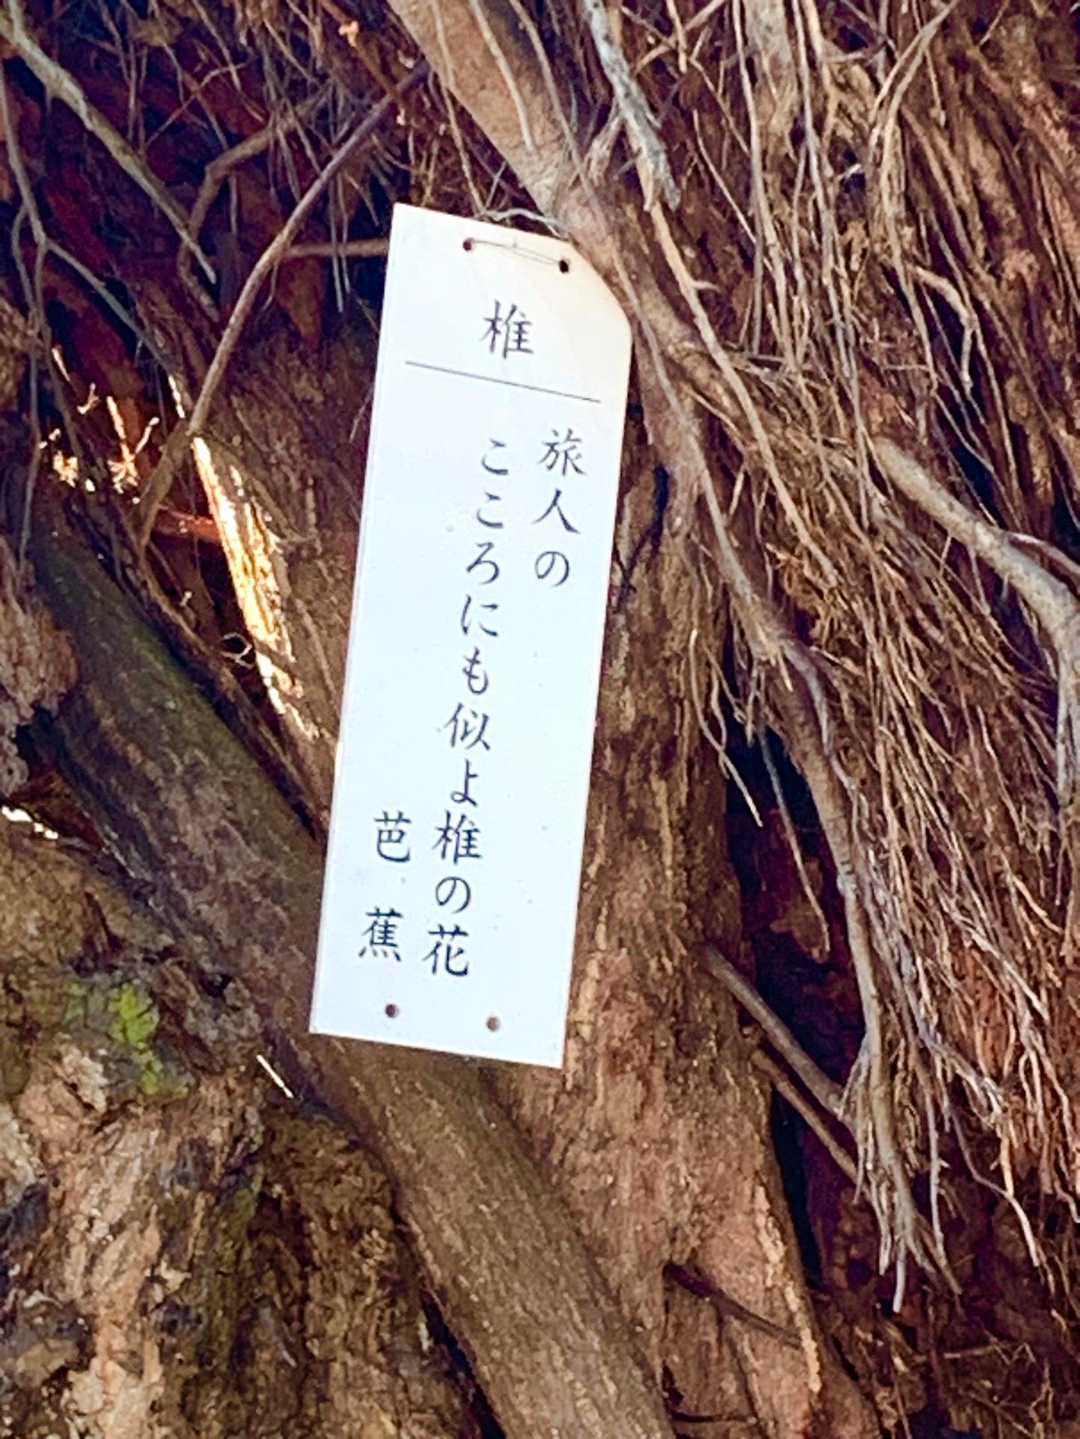 椎
旅人の
こころにも似よ椎の花
芭蕉